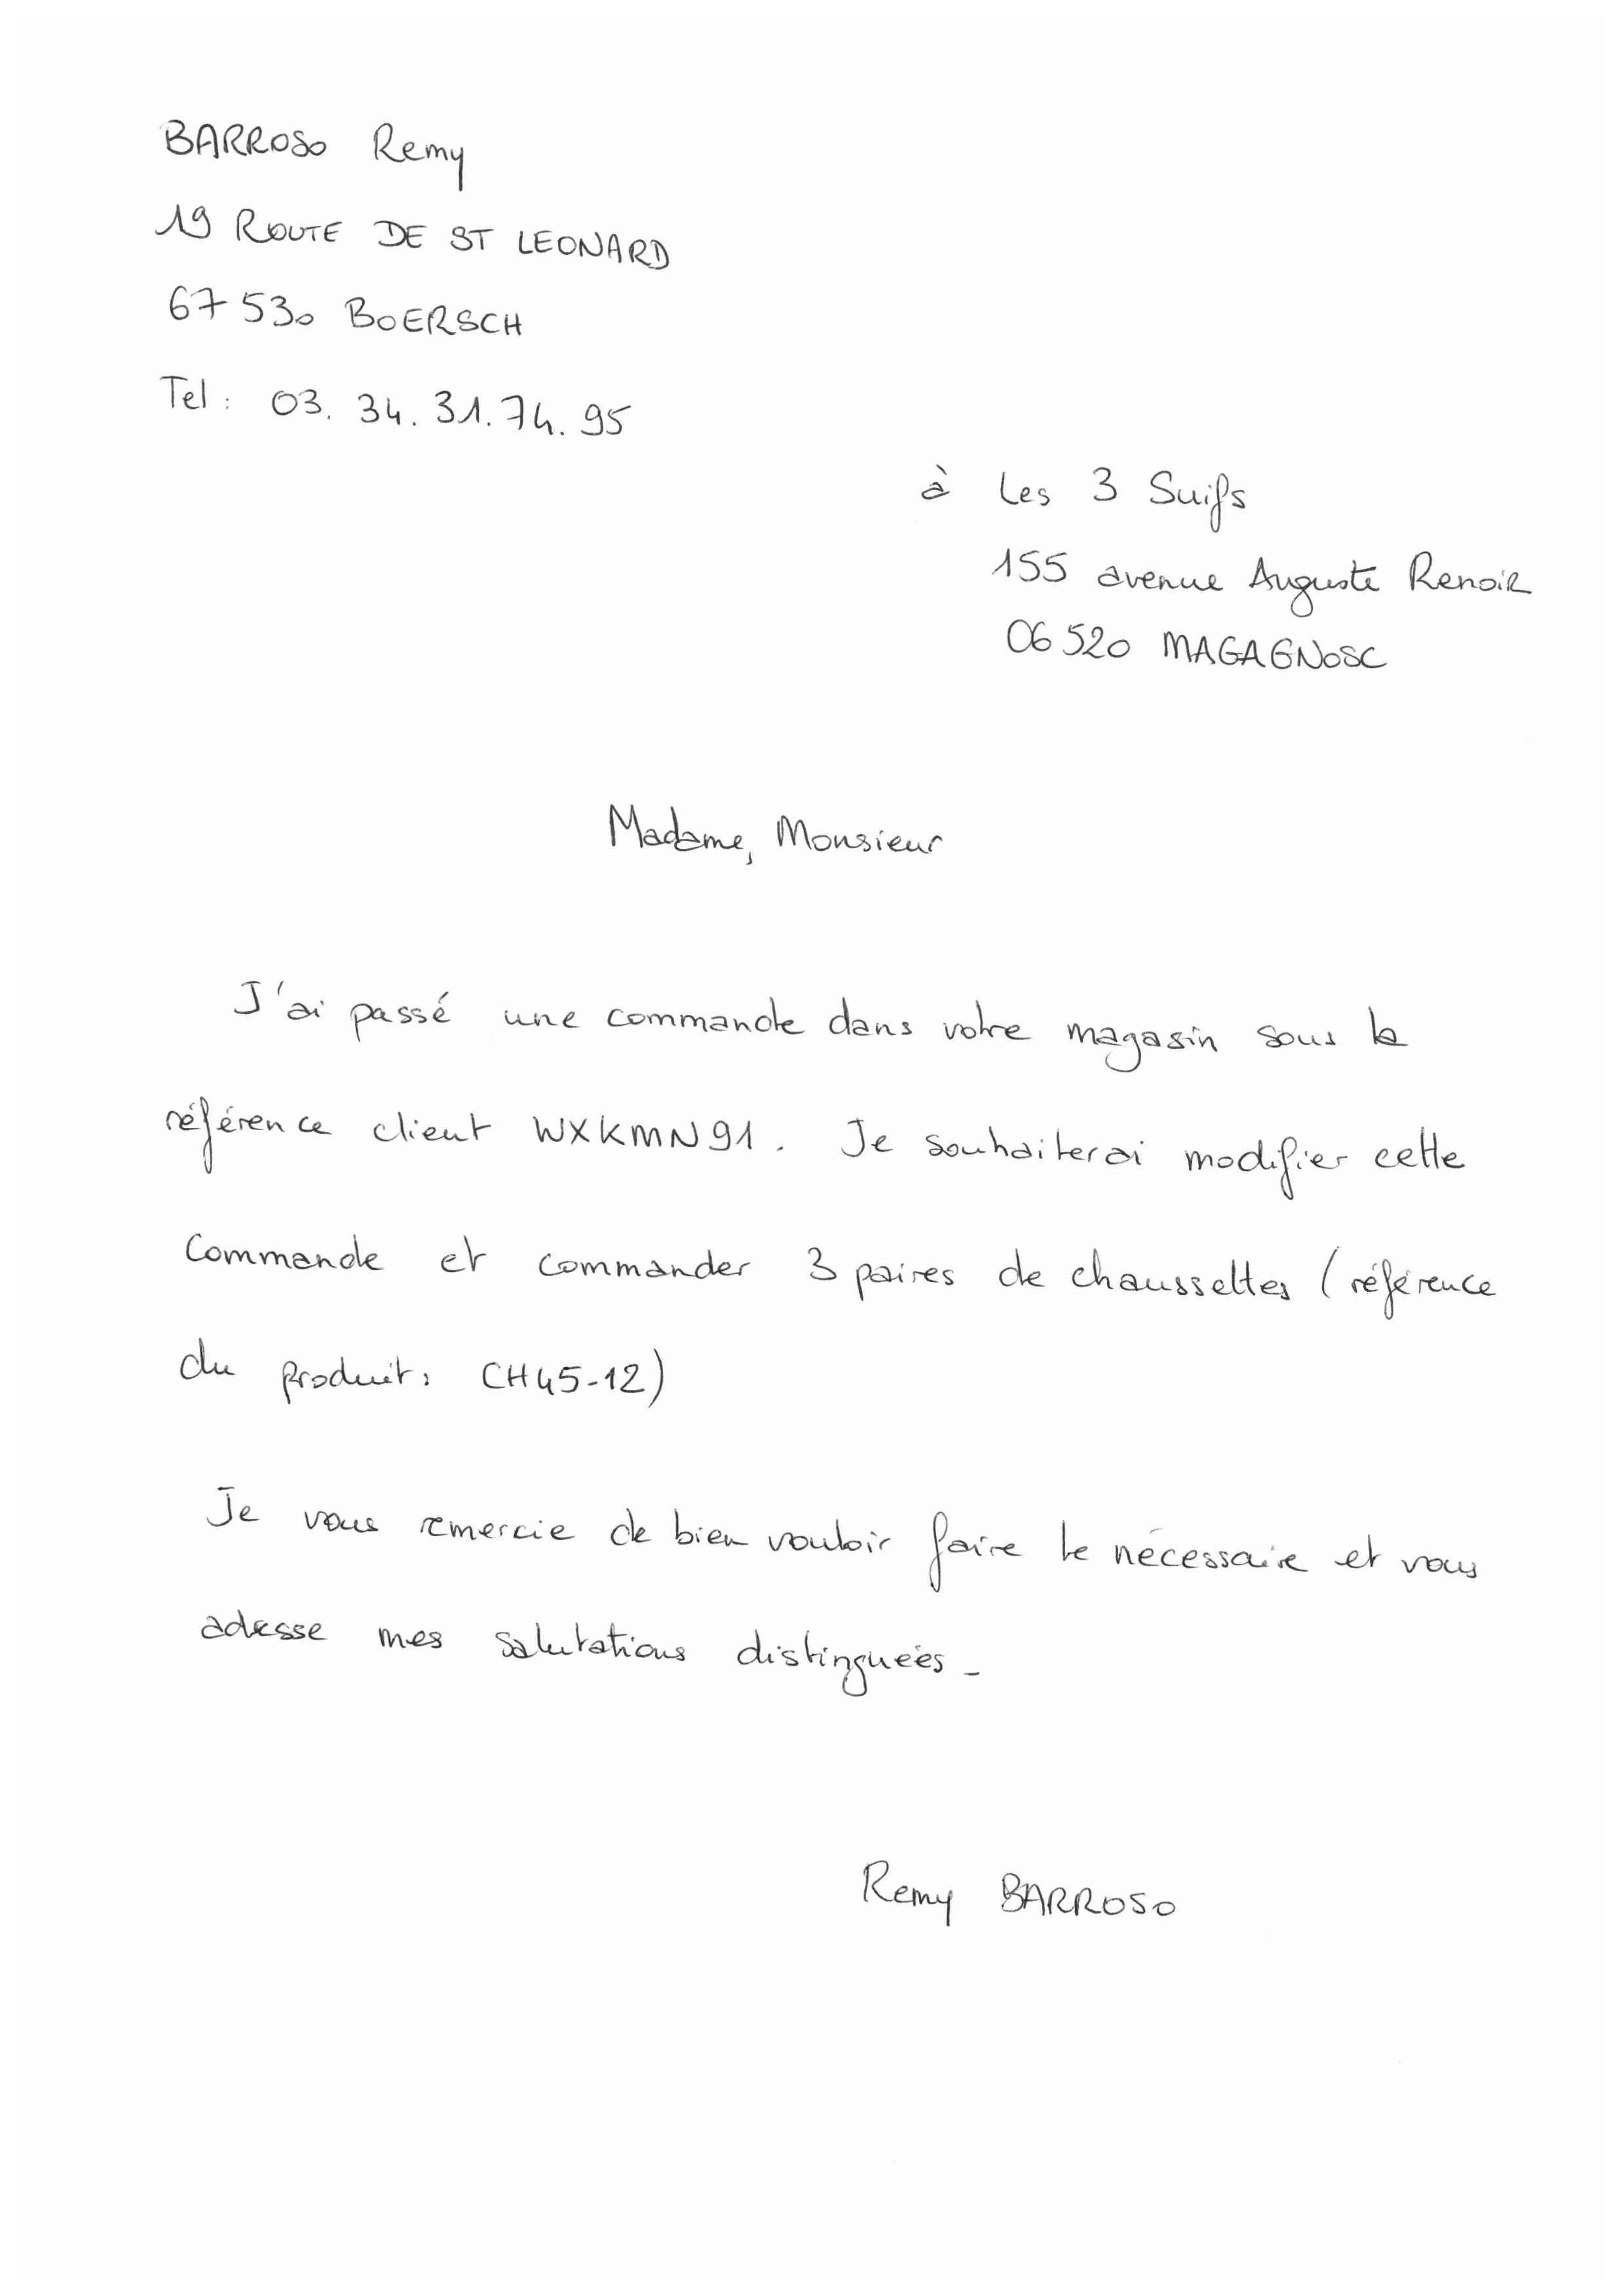 BARROSO Remy
19 ROUTE DE ST LEONARD
67 530 BOERSCH
Tel : 03. 34. 31. 74. 95
à Les 3 Suifs
155 avenue Auguste Renoir
06 520 MAGAGNOSC
Madame, Monsieur
J'ai passé une commande dans votre magasin sous la
référence client WXKMN91. Je souhaiterai modifier cette
commande et commander 3 paires de chaussettes (référence
du produit : CH45-12)
Je vous remercie de bien vouloir faire le nécessaire et vous
adresse mes salutations distinguées -
Remy BARROSO